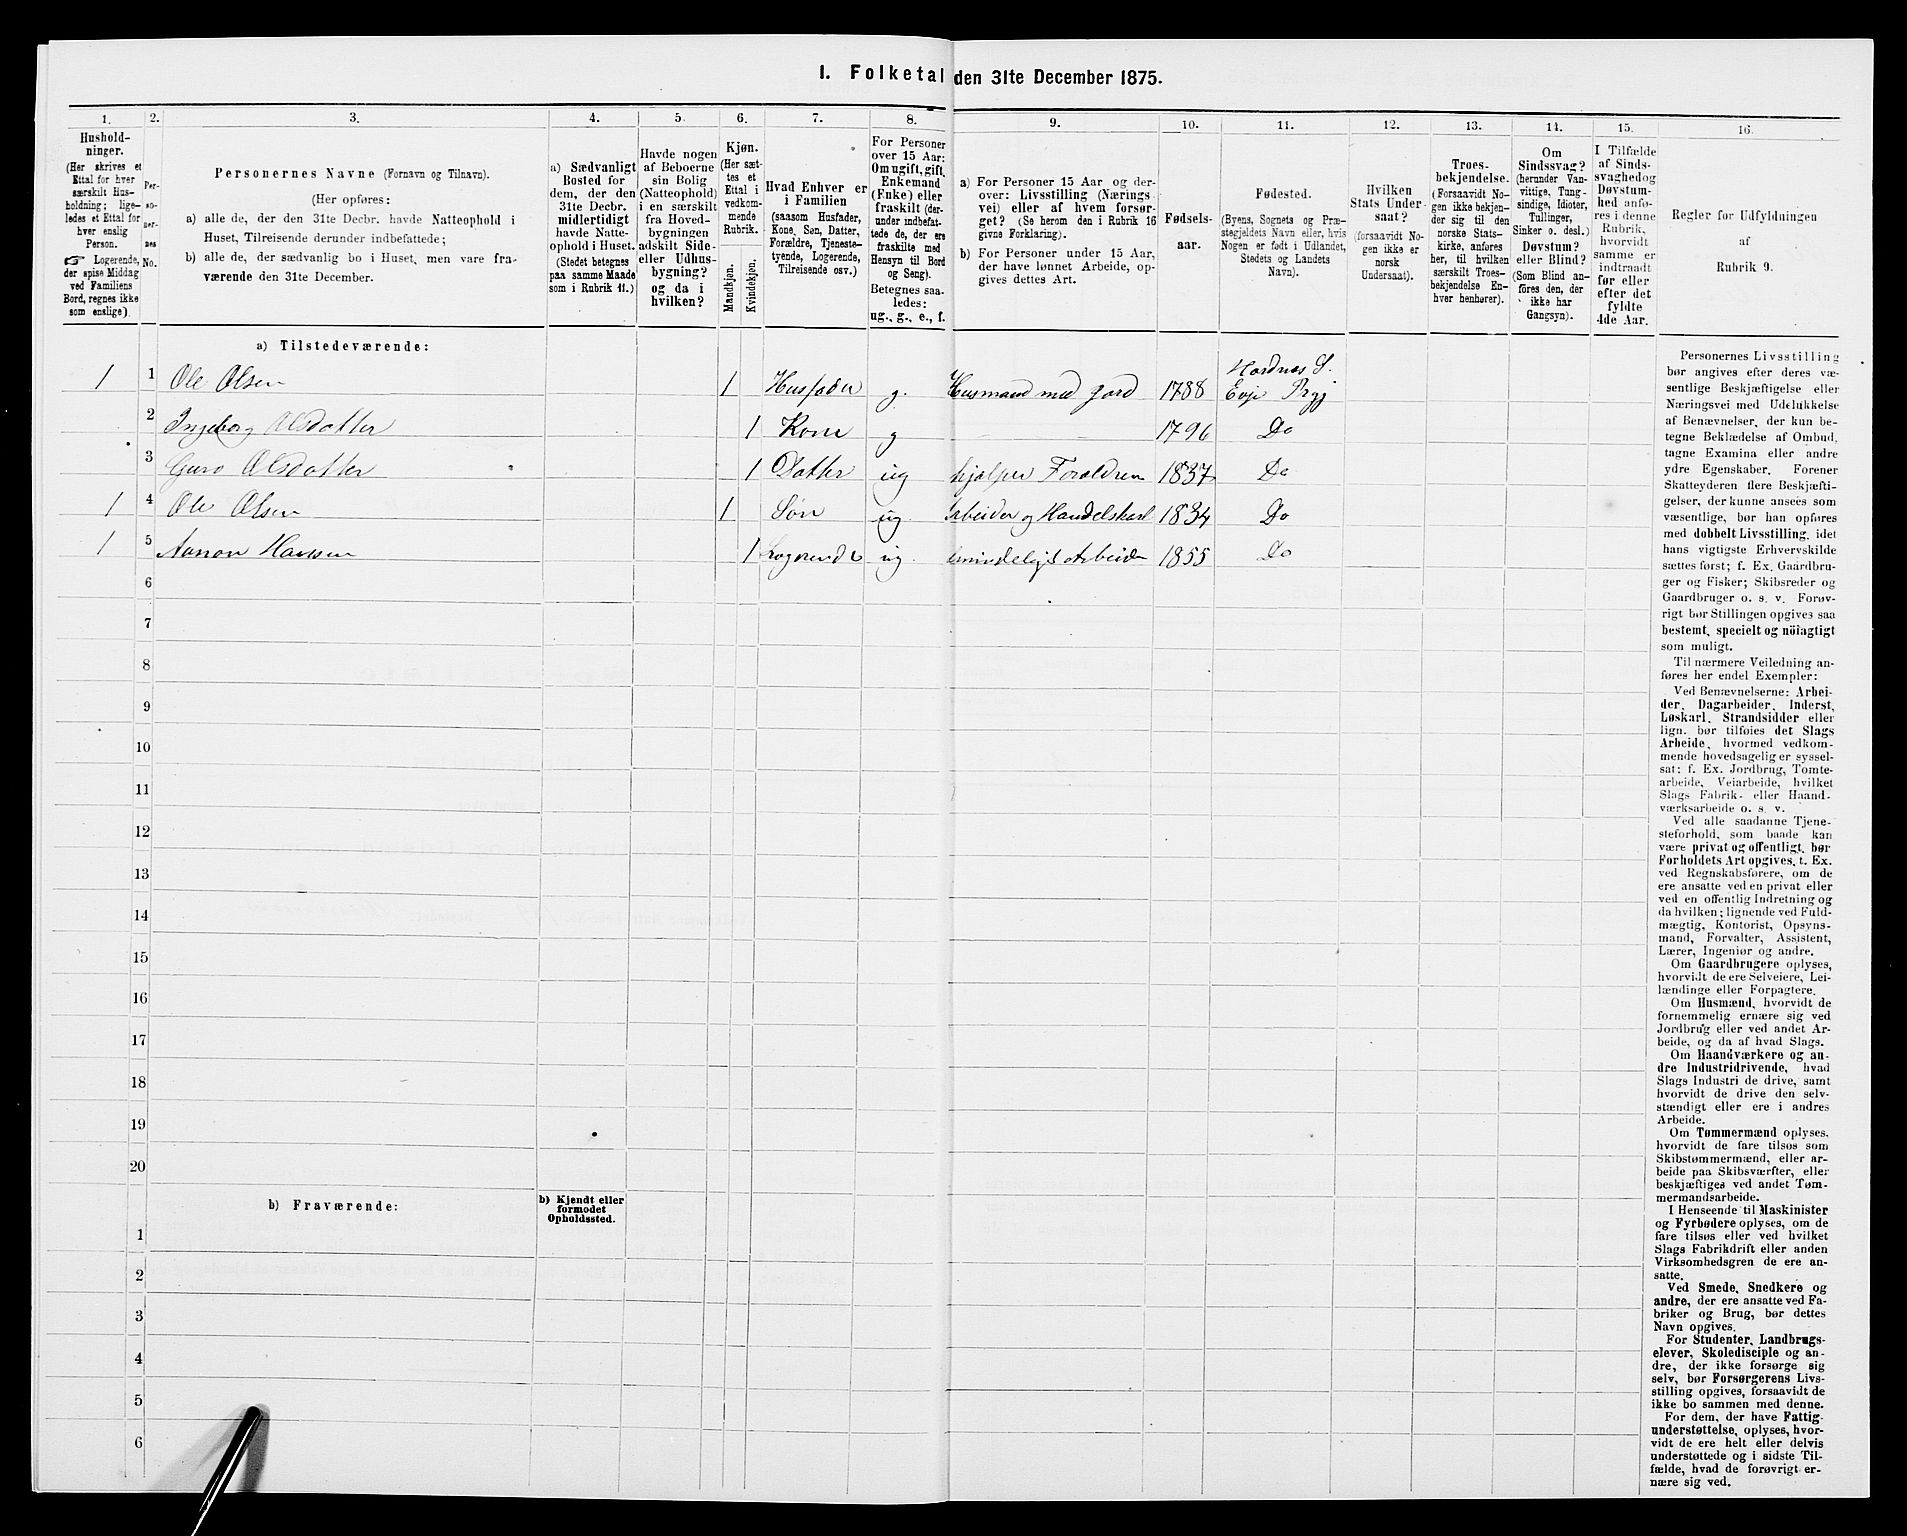 I. Folketal den 31te December 1875.
1.
2.
3.
4.
5.
6.
7.
8.
9.
10.
11.
12.
13.
14.
15.
16.
Hushold-
ninger.
(Her skrives et
Ettal for hver
særskilt Hus-
holdning; lige-
ledes et Ettal for
hver enslig
Person.
☞ Logerende,
der spise Middag
ved Familiens
Bord, regnes ikke
som enslige).
Per-
so-
ner-
nes
No.
Personernes Navne (Fornavn og Tilnavn).
(Her opføres:
a) alle de, der den 31te Decbr. havde Natteophold i
Huset, Tilreisende derunder indbefattede;
b) alle de, der sædvanlig bo i Huset, men vare fra-
værende den 31te December.
a) Sædvanligt
Bosted for
dem, der den
31te Decbr.
midlertidigt
havde Natte-
ophold i Huset.
(Stedet betegnes
paa samme Maade
som i Rubrik 11.)
Havde nogen
af Beboerne
sin Bolig
(Natteophold)
i en særskilt
fra Hoved-
bygningen
adskilt Side-
eller Udhus-
bygning?
og da i
hvilken?
Kjøn.
(Her sæt-
tes et
Ettal i
vedkom-
mende
Rubrik.)
Mandkjøn.
Kvindekjøn.
Hvad Enhver er
i Familien
(saasom Husfader,
Kone, Søn, Datter,
Forældre, Tjeneste-
tyende, Logerende,
Tilreisende osv.)
For Personer
over 15 Aar:
Om ugift, gift,
Enkemand
(Enke) eller
fraskilt (der-
under indbefat-
tede de, der ere
fraskilte med
Hensyn til Bord
og Seng).
Betegnes saa-
ledes:
ug., g., e., f.
a) For Personer 15 Aar og der-
over: Livsstilling (Nærings-
vei) eller af hvem forsør-
get? (Se herom den i Rubrik 16
givne Forklaring).
b) For Personer under 15 Aar,
der have lønnet Arbeide, op-
gives dettes Art.
Fødsels-
aar.
Fødested.
(Byens, Sognets og Præ-
stegjeldets Navn eller, hvis
Nogen er født i Udlandet,
Stedets og Landets
Navn).
Hvilken
Stats Under-
saat?
(forsaavidt No-
gen ikke er
norsk
Undersaat).
Troes-
bekjendelse.
(Forsaavidt No-
gen ikke bekjen-
der sig til den
norske Stats-
kirke, anføres
her, til hvilken
særskilt Troes-
bekjendelse En-
hver henhører).
Om
Sindssvag?
(herunder Van-
vittige, Tung-
sindige, Idioter,
Tullinger,
Sinker o. desl.)
Døvstum?
eller Blind?
(Som Blind an-
føres den, der
ikke har
Gangsyn).
I Tilfælde
af Sinds-
svaghed og
Døvstum-
hed anfø-
res i denne
Rubrik,
hvorvidt
samme er
indtraadt
før eller
efter det
fyldte
4de Aar.
Regler for Udfyldningen
af
Rubrik 9.
a) Tilstedeværende:
1 1 Ole Olsen 1 Husfader g. Husmand med Jord 1788 Hordnes S. Evje Prgj
2 Ingeborg Olsdatter 1 Kone g 1796 Do
3 Guro Olsdatter 1 Datter ug hjælper Forældren 1837 Do
1 4 Ole Olsen 1 Søn ug. Arbeider og Handelskarl 1834 Do
1 5 Hansen 1 Logerende ug. Arbeide 1855 Do
6
7
8
9
10
11
12
13
14
15
16
17
18
19
20
b) Fraværende:
b) Kjendt eller
formodet
Opholdssted.
1
2
3
4
5
6
Personernes Livsstilling
bør angives efter deres væ-
sentlige Beskjæftigelse eller
Næringsvei med Udelukkelse
af Benævnelser, der kun be-
tegne Beklædelse af Ombud,
tagne Examina eller andre
ydre Egenskaber. Forener
Skatteyderen flere Beskjæfti-
gelser, der kunne ansees som
væsentlige, bør han opføres
med dobbelt Livsstilling, idet
hans vigtigste Erhvervskilde
sættes først; f. Ex. Gaardbru-
ger og Fisker; Skibsreder og
Gaardbruger o. s. v. Forøv-
rigt bør Stillingen opgives saa
bestemt, specielt og nöiagtigt
som muligt.
Til nærmere Veiledning an-
føres her endel Exempler:
Ved Benævnelserne: Arbei-
der, Dagarbeider, Inderst,
Løskarl, Strandsidder eller
lign. bør tilføies det Slags
Arbeide, hvormed vedkom-
mende hovedsagelig er syssel-
sat; f. Ex. Jordbrug, Tomte-
arbeide, Veiarbeide, hvilket
Slags Fabrik- eller Haand-
værksarbeide o. s. v.
Ved alle saadanne Tjene-
steforhold, som baade kan
være privat og offentligt, bør
Forholdets Art opgives, t. Ex.
ved Regnskabsførere, om de
ere ansatte ved en privat eller
ved en offentlig Indretning og
da hvilken; lignende ved Fuld-
mægtig, Kontorist, Opsyns-
mand, Forvalter, Assistent,
Lærer, Ingeniør og andre.
Om Gaardbrugere oplyses,
hvorvidt de ere Selveiere, Lei-
lændinge eller Forpagtere.
Om Husmænd, hvorvidt de
fornemmelig ernære sig ved
Jordbrug eller ved andet Ar-
beide, og da af hvad Slags.
Om Haandværkere og an-
dre Industridrivende, hvad
Slags Industri de drive, samt
hvorvidt de drive den selv-
stændigt eller ere i andres
Arbeide.
Om Tømmermænd oplyses,
hvorvidt de fare tilsøs som
Skibstømmermænd, eller ar-
beide paa Skibsværfter, eller
beskjæftiges ved andet Tøm-
mermandsarbeide.
I Henseende til Maskinister
og Fyrbødere oplyses, om de
fare tilsøs eller ved hvilket
Slags Fabrikdrift eller anden
Virksomhedsgren de ere an-
satte.
Ved Smede, Snedkere og
andre, der ere ansatte ved Fa-
briker og Brug, bør dettes
Navn opgives.
For Studenter, Landbrugs-
elever, Skoledisciple og an-
dre, der ikke forsørge sig
selv, bør Forsørgerens Livs-
stilling opgives, forsaavidt de
ikke bo sammen med denne.
For dem, der have Fattig-
understøttelse, oplyses, hvor-
vidt de ere helt eller delvis
understøttede og i sidste Til-
fælde, hvad de forøvrigt er-
nære sig ved.